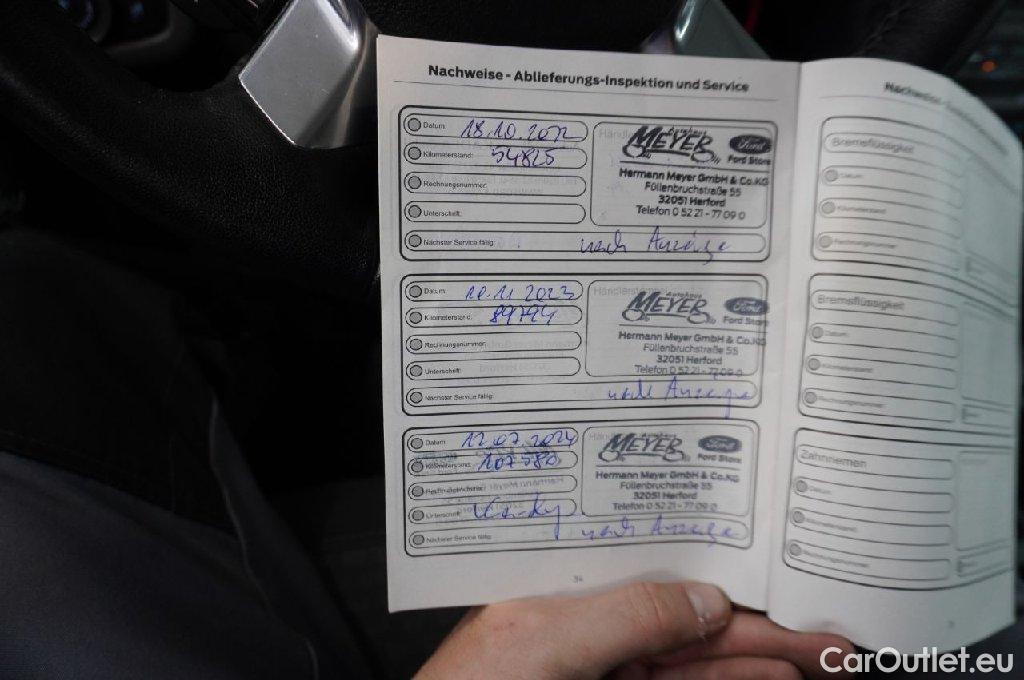 Nachweise - Ablieferungs-Inspektion und Service
Datum: 18.10.2022
Kilometerstand: 54825
Rechnungsnummer:
Unterschrift:
Nächster Service fällig: nach Anzeige
Autohaus
MEYER Ford
Ford Store
Hermann Meyer GmbH & Co.KG
Füllenbruchstraße 55
32051 Herford
Telefon 0 52 21 - 77 09 0
Datum: 10.11.2023
Kilometerstand: 89794
Rechnungsnummer:
Unterschrift:
Nächster Service fällig: nach Anzeige
Autohaus
MEYER Ford
Ford Store
Hermann Meyer GmbH & Co.KG
Füllenbruchstraße 55
32051 Herford
Telefon 0 52 21 - 77 09 0
Datum: 12.07.2024
Kilometerstand: 107580
Rechnungsnummer:
Unterschrift:
Nächster Service fällig: nach Anzeige
MEYER Ford
Ford Store
Hermann Meyer GmbH & Co.KG
Füllenbruchstraße 55
32051 Herford
Telefon 0 52 21 - 77 09 0
34
Bremsflüssigkeit
Datum:
Kilometerstand:
Rechnungsnummer:
Bremsflüssigkeit
Datum:
Kilometerstand:
Rechnungsnummer:
Zahnriemen
Datum:
Kilometerstand:
Rechnungsnummer:
CarOutlet.eu